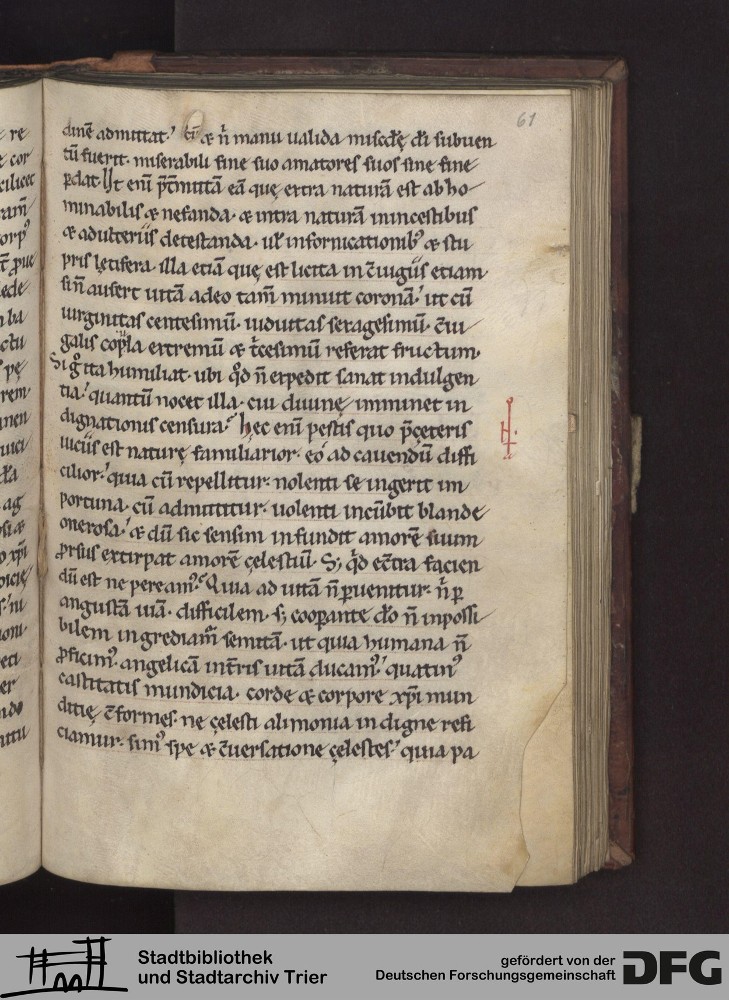 61
dinē admittat. & n̄ manu ualida misc̄dę d̄i subuen
tū fuerit. miserabili fine suo amatores suos sine fine
ꝑdat. Ut enī p̄t̄mittā eā quę extra naturā est abho
minabilis & nefanda. & intra naturā in incestibus
& adulteriis detestanda. ul̄ in fornicationib; & stu
pris lętifera. illa etiā quę est licita in c̄iugiis etiam
si n̄ aufert uitā adeo tam̄ minuit coronā. ut cū
uirginitas centesimū. uiduitas sexagesimū. c̄iu
galis copla extremū & t̄cesimū referat fructum.
Si g° ita humiliat. ubi qd̄ n̄ expedit sanat indulgen
tia. quantū nocet illa. cui diuinę imminet in
dignationis censura. Hęc enī pestis quo p̄ ceteris
uiciis est naturę familiarior. eo ad cauendū diffi
cilior. quia cū repellitur. nolenti se ingerit im
portuna. cū admittitur. uolenti incūbit blande
onerosa. & dū sic sensim infundit amorē suum
ꝓrsus extirpat amorē cęlestiū. S; qd̄ ec̄tra facien
dū est ne pereamꝰ. Quia ad uitā n̄ ꝑuenitur. n̄ ꝑ
angustā uiā. difficilem. s; cooꝑante d̄o n̄ inpossi
bilem ingrediam̄ semitā. ut quia humana n̄
ꝓficimꝰ. angelicā in t̄ris uitā ducamꝰ. quatinꝰ
castitatis mundicia. corde & corpore xp̄i mun
ditię c̄formes. ne cęlesti alimonia indigne refi
ciamur. simꝰ spe & c̄uersatione cęlestes. quia pa
Stadtbibliothek
und Stadtarchiv Trier
gefördert von der
Deutschen Forschungsgemeinschaft
DFG